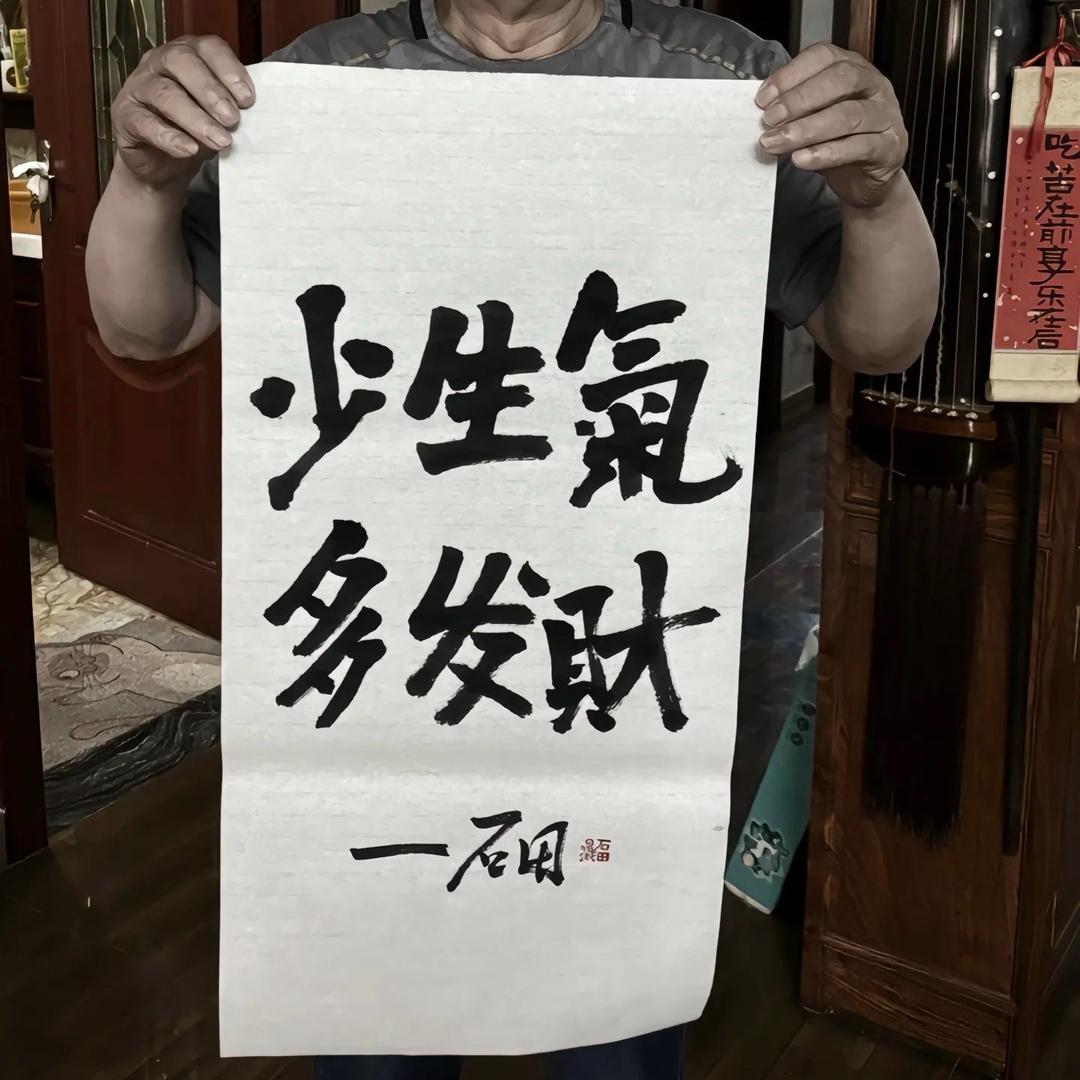 少生氣
多发財
一石田
石田
吃苦在前享乐在后